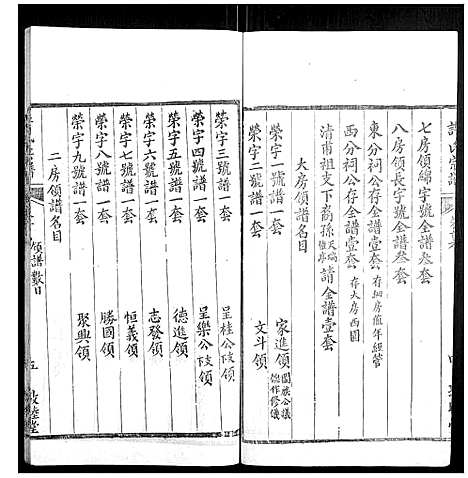 七房領綿字號全譜叁套
八房領長字號全譜叁套
東分祠公存全譜壹套 存細房值年經管
西分祠公存全譜壹套 存大房西園
清甫祖支下裔孫 請全譜壹套
大房領譜名目
榮字一號譜一套 家進領 闔族公議
榮字二號譜一套 文斗領
榮字三號譜一套 呈桂公支領
榮字四號譜一套 呈樂公支領
榮字五號譜一套 德進領
榮字六號譜一套 志發領
榮字七號譜一套 恒義領
榮字八號譜一套 勝國領
榮字九號譜一套 聚興領
二房領譜名目
領譜數目 五 敦睦堂